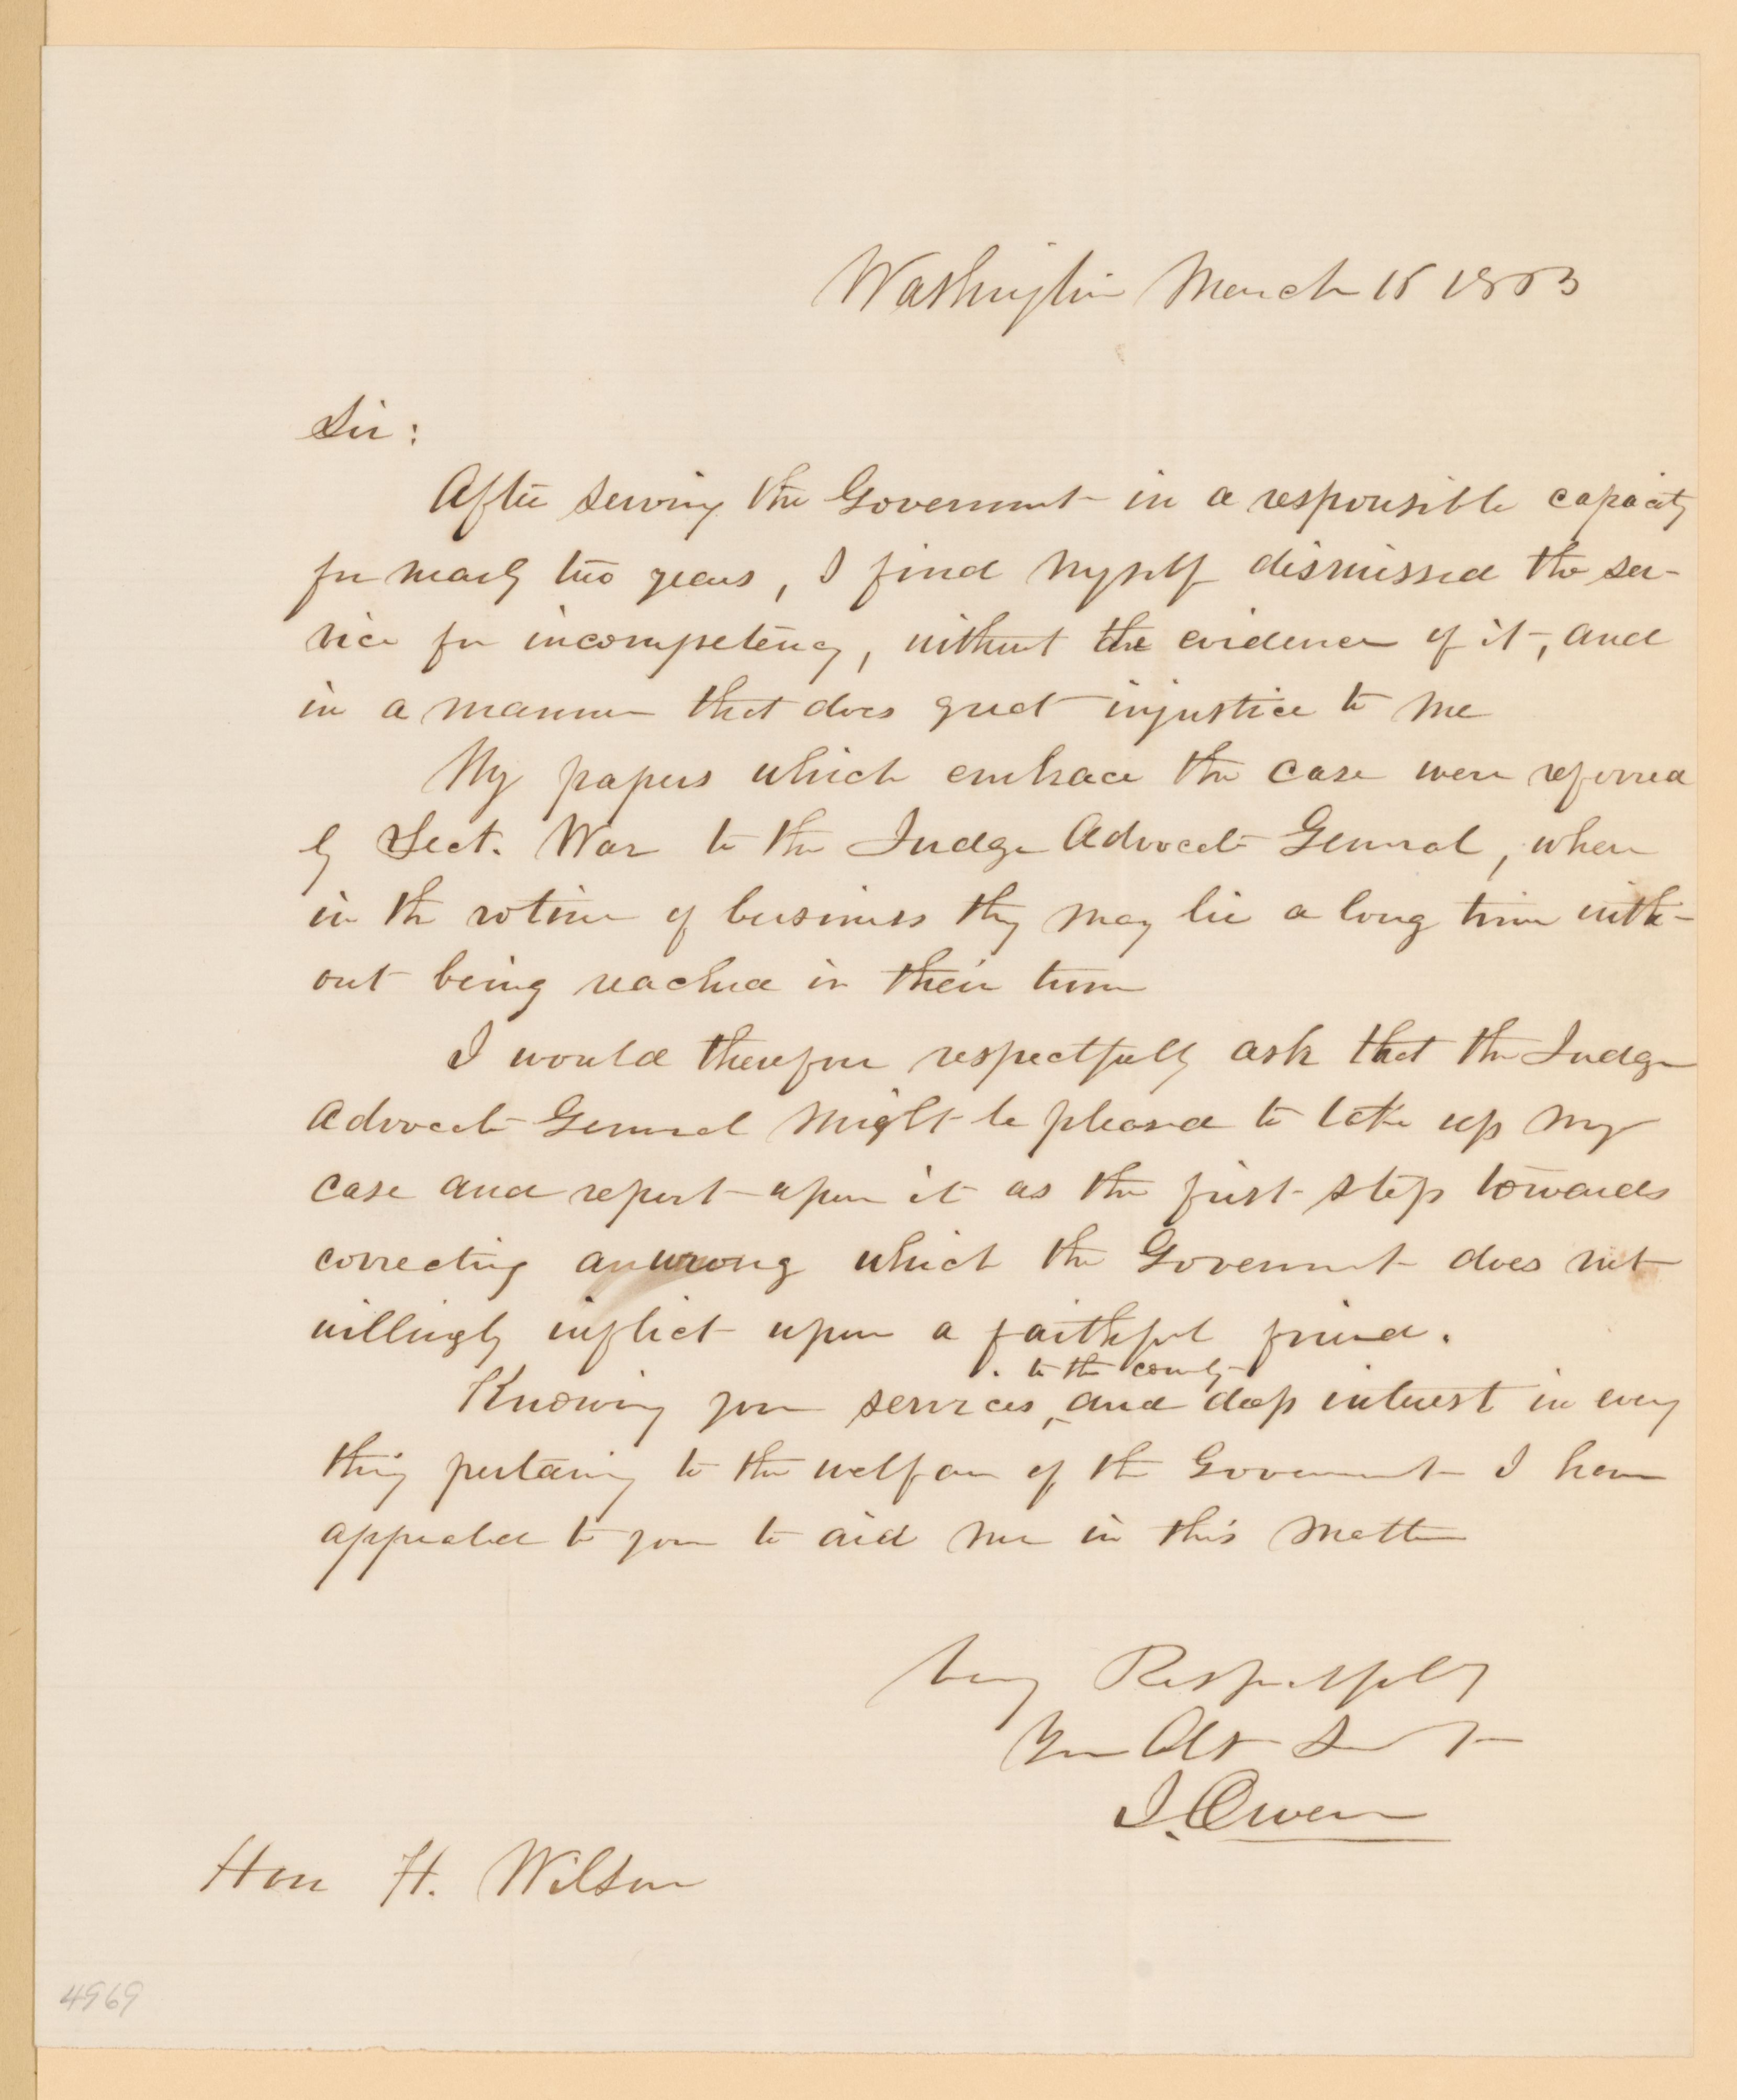 Washington March 15 1863
Sir:
After serving the Government in a responsible capacity
for nearly two years, I find myself dismissed the ser-
vice for incompetency, without the evidence of it, and
in a manner that does great injustice to me
My papers which embrace the case were referred
by Sect. War to the Judge Advocate General, where
in the rotine of business they may lie a long time with-
out being reached in their turn
I would therefore respectfully ask that the Judge
Advocate General might be pleased to take up my
case and report upon it as the first step towards
correcting a wrong which the Government does not
willingly inflict upon a faithful friend.
to the country
Knowing your services, and deep interest in every
thing pertaining to the welfare of the Government I have
appealed to you to aid me in this matter
Very Respectfully
Your Obt Servt
J. Owen
Hon H. Wilson
4969